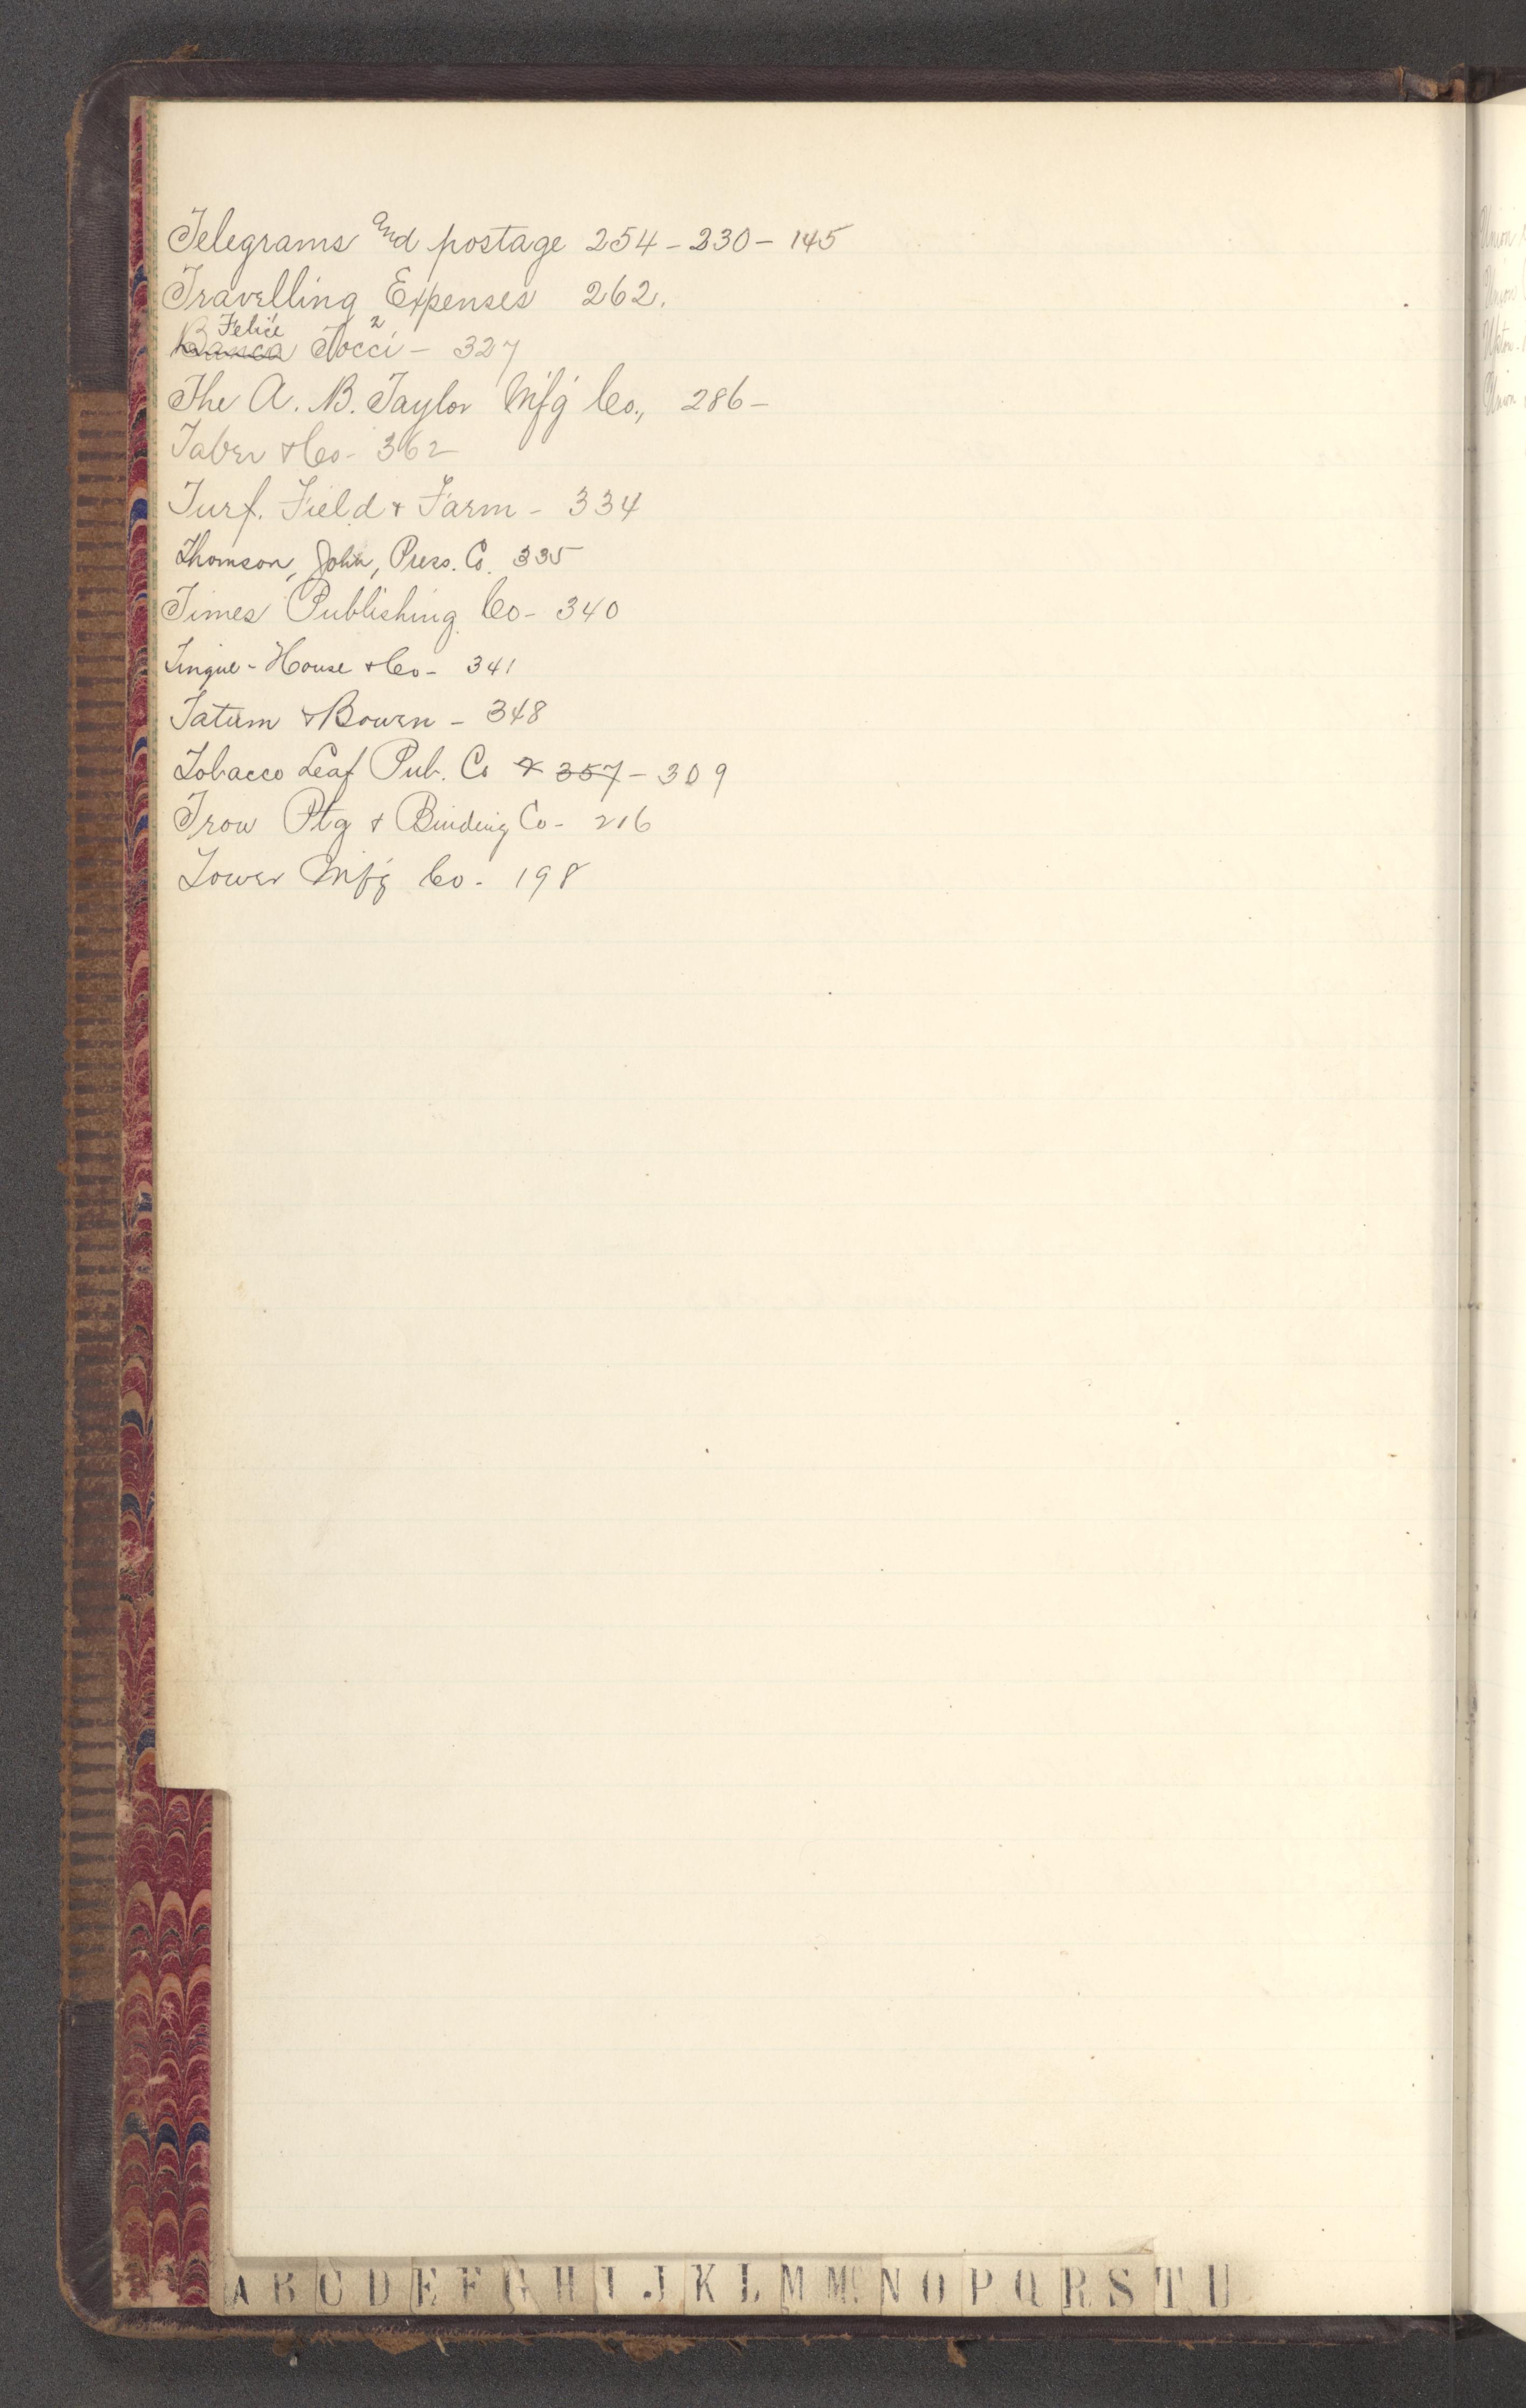 Telegrams and postage 254 - 230 - 145
Travelling Expenses 262.
Felice
Banca Tocci - 327
2
The A. B. Taylor Mfg Co., 286 -
Taber & Co - 362
Turf. Field & Farm - 334
Thomson, John, Press. Co. 335
Times Publishing Co - 340
Tingue - House & Co - 341
Tatum & Bowen - 348
Tobacco Leaf Pub. Co & 357 - 309
Trow Ptg & Binding Co - 216
Tower Mfg Co - 198
A B C D E F G H I J K L M Mc N O P Q R S T U
Union
Union
Upton -
Union